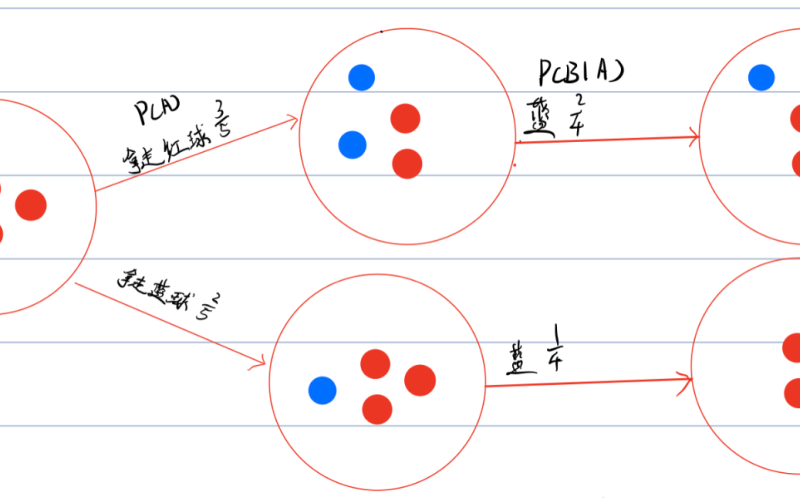 P(A)
拿走红球 3/5
P(B|A)
蓝 2/4
拿走蓝球 2/5
蓝 1/4